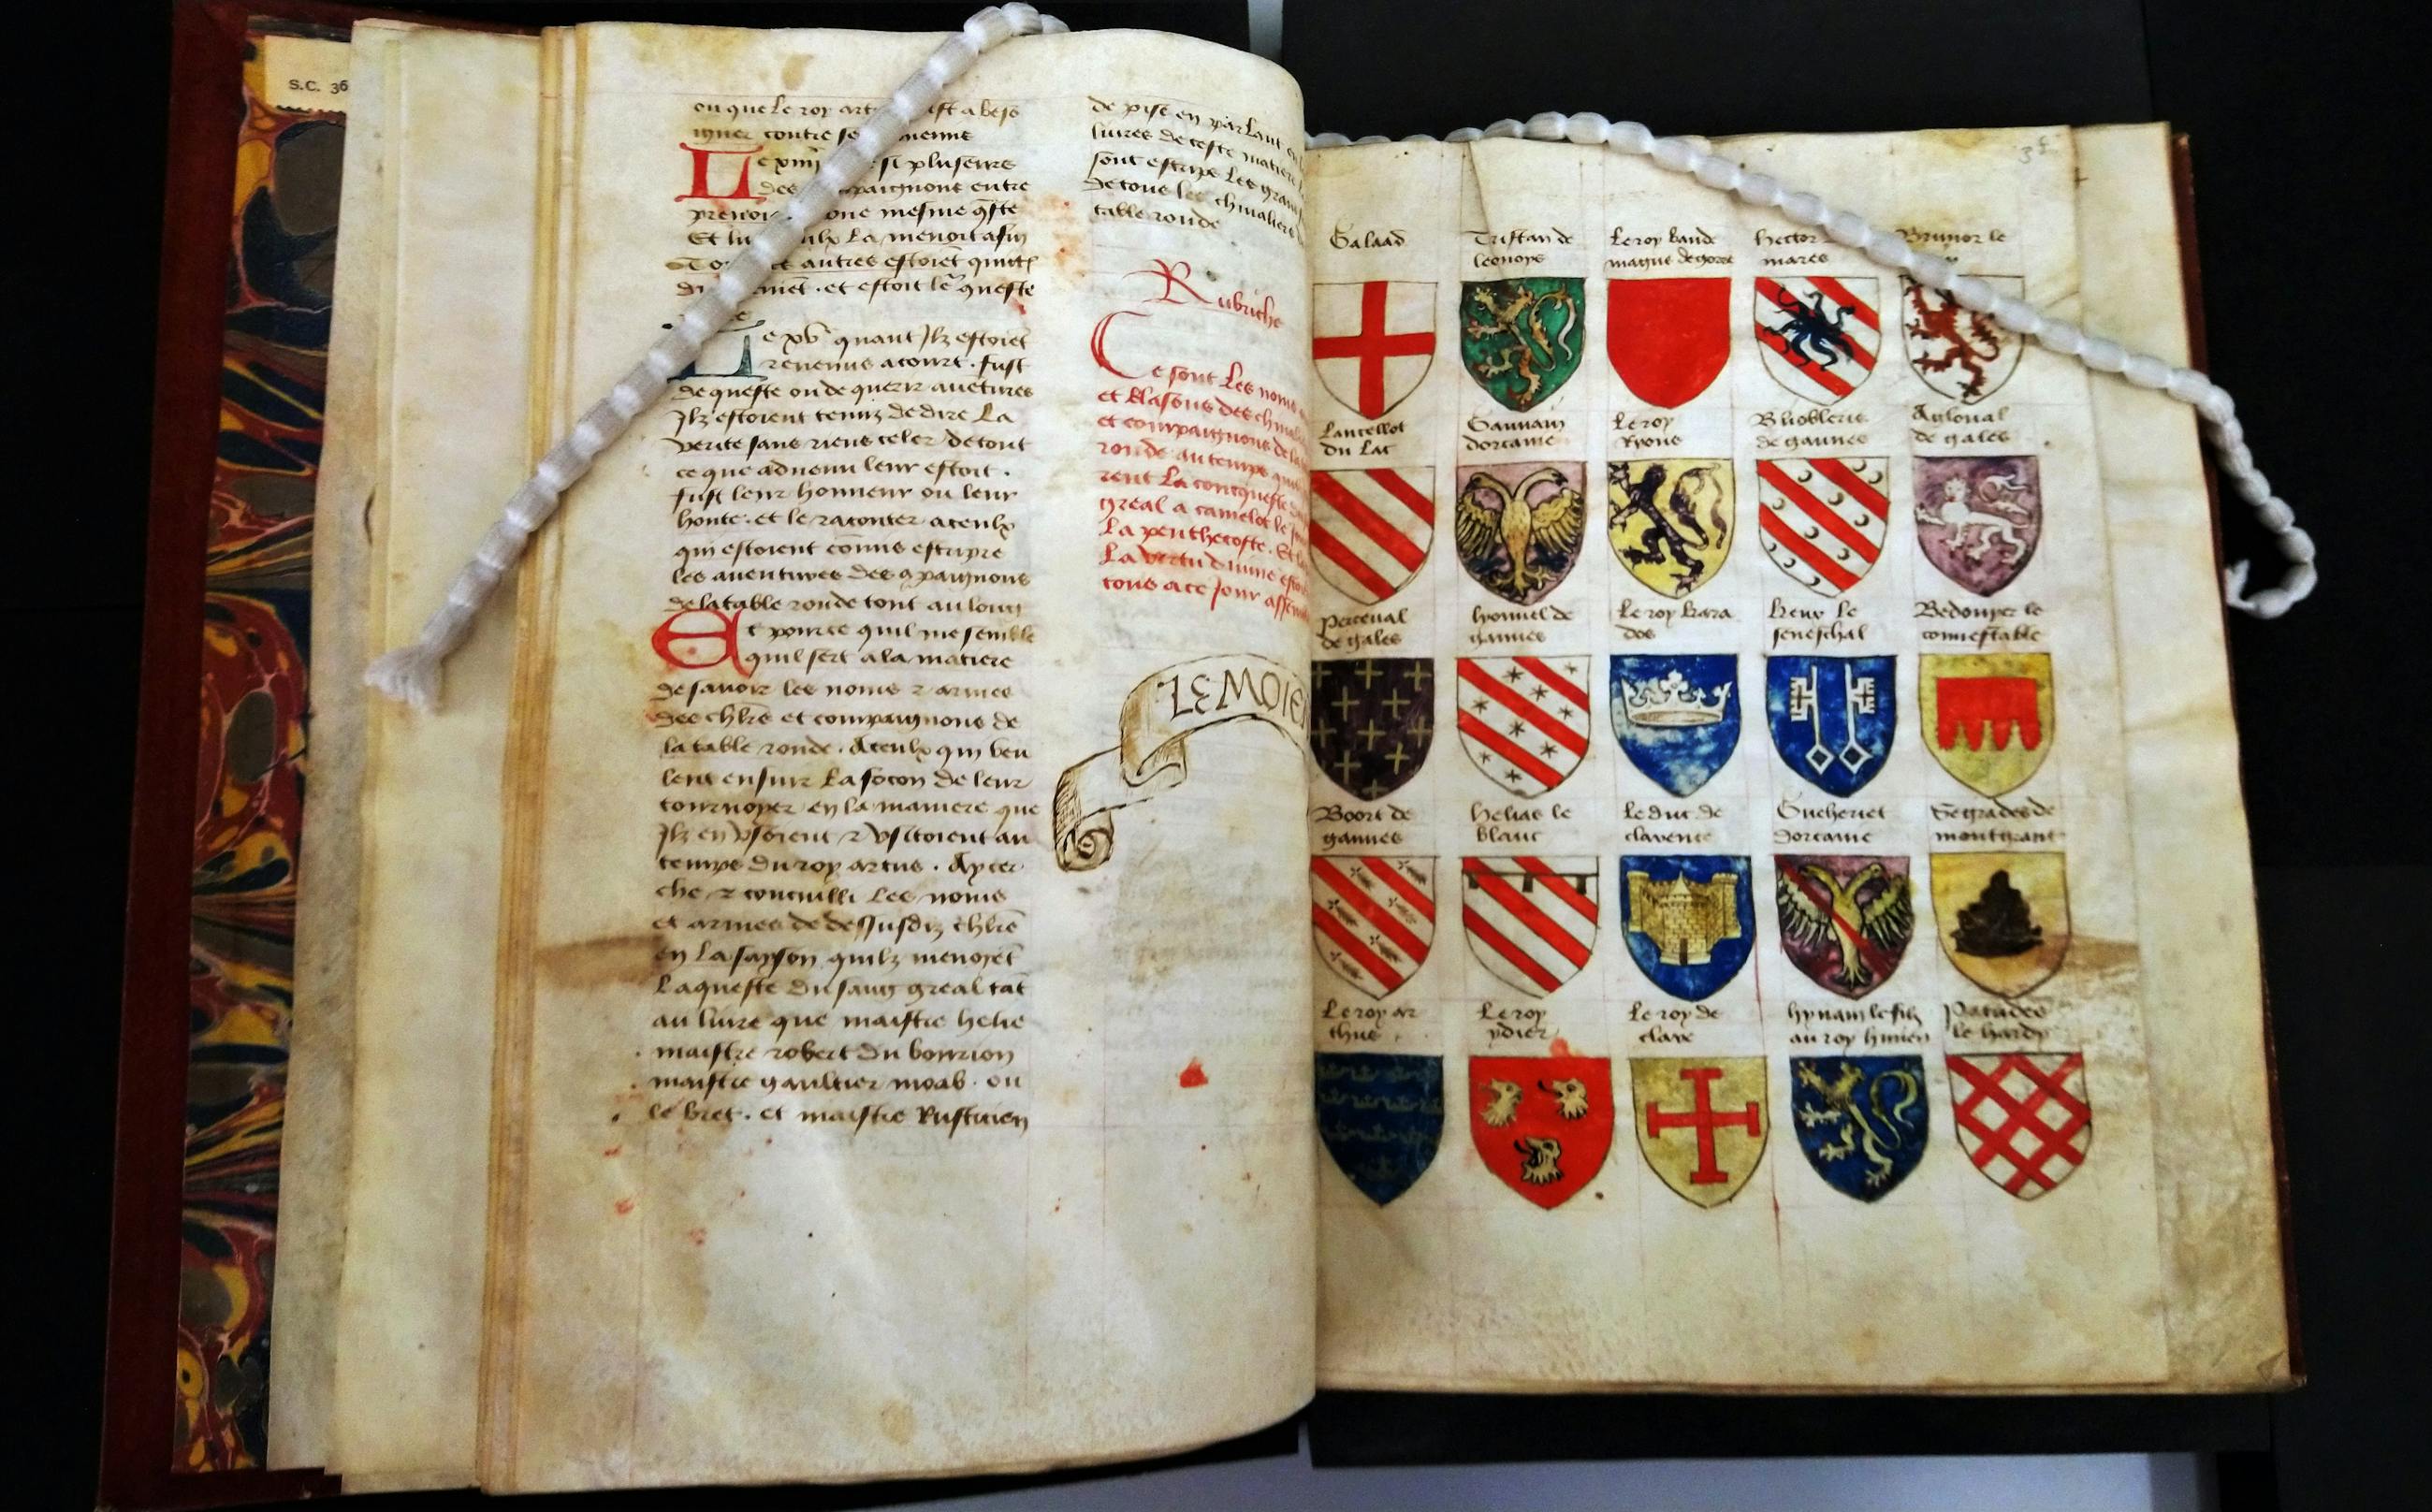 S.C. 36
ou que le roy art ist a besō
igner contre se mienne
Le xiiii si plusieurs
des paignons entre
prenoi une mesme q̄ste
Et lu ulx la menoit a fin
To autres estoiēt quictes
du et estoit le queste
Le xv quant Ilz estoiēt
revenus a court. fust
de queste ou de querir auētures
Ilz estoient tenuz de dire La
verite sans riens celer de tout
ce que aduenu leur estoit.
fust leur honneur ou leur
honte. et le raconter a ceulx
qui estoient cōmis escripre
les auentures des ꝯpaignons
de la table ronde tout au long
Et pource quil me semble
quil sert a la matiere
de sauoir les noms ⁊ armes
des chlr̄s et compaignons de
la table ronde. A ceulx qui veu
lent ensuir La facon de leur
tournoyer en la maniere que
Ilz en vsoient ⁊ vsitoient au
temps du roy artus. Ay cer
che ⁊ concuilli Les noms
et armes de dessusdiz chlr̄s
en La sayson quilz menoyēt
La queste du sang greal tāt
au liure que maistre helie
maistre robert du borrion
maistre gaultier moab. ou
le bret. et maistre Rusticien
de pise en parlant en
liures de ceste matiere
sont escrips Les grans
de tous les chīualiers
table ronde
Rubriche
Ce sont Les noms
et blasons des
et compaignons de la
ronde au temps
rent La conqueste
greal a camelot le
La penthecoste. Et
La vertu diuine
tous a ce Jour
LEMOIE
38
Galaad
Tristan de
leonoys
Le roy bande
magus de gorre
hector
mares
Brunor le
Lancellot
du Lac
Gauuain
dorcanie
Le roy
Ryons
Bliobleris
de gaunes
Agloual
de gales
Perceual
de gales
lyonnel de
gaunes
Le roy kara
dos
keux le
seneschal
Bedouyer le
connestable
Boort de
gaunes
helias le
blanc
Le duc de
clarence
Gueheriet
dorcanie
Segrades de
montgrant
Le roy ar
thus
Le roy
ydier
Le roy de
clare
hyuain le filz
au roy
Patrides
le hardy